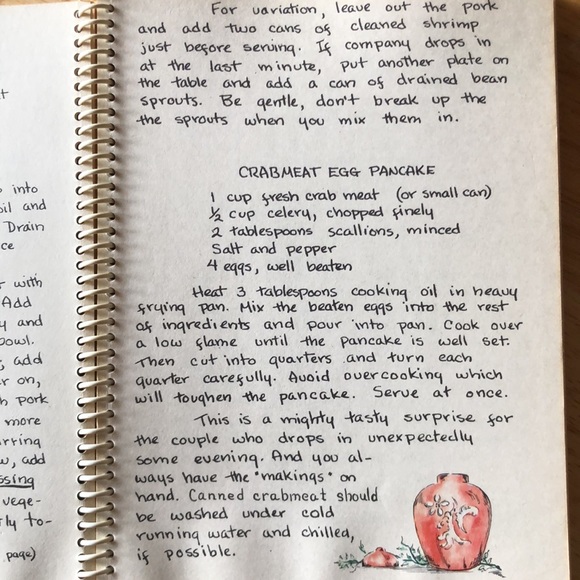 t
o into
oil and
Drain
ce
r with
Add
y and
bowl.
; add
er on,
h pork
more
irring
w, add
ssing
vege-
rly to-
page)
For variation, leave out the pork
and add two cans of cleaned shrimp
just before serving. If company drops in
at the last minute, put another plate on
the table and add a can of drained bean
sprouts. Be gentle, don't break up the
the sprouts when you mix them in.
CRABMEAT EGG PANCAKE
1 cup fresh crab meat (or small can)
½ cup celery, chopped finely
2 tablespoons scallions, minced
Salt and pepper
4 eggs, well beaten
Heat 3 tablespoons cooking oil in heavy
frying pan. Mix the beaten eggs into the rest
of ingredients and pour into pan. Cook over
a low flame until the pancake is well set.
Then cut into quarters and turn each
quarter carefully. Avoid overcooking which
will toughen the pancake. Serve at once.
This is a mighty tasty surprise for
the couple who drops in unexpectedly
some evening. And you al-
ways have the "makings" on
hand. Canned crabmeat should
be washed under cold
running water and chilled,
if possible.